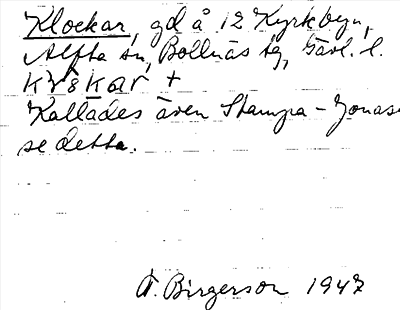 Klockar, gd å 12 Kyrkbyn,
Alfta sn, Bollnäs tg, Gävl. l.
klokar +
Kallades även Stampa-Jonas
se detta.
A. Birgerson 1947